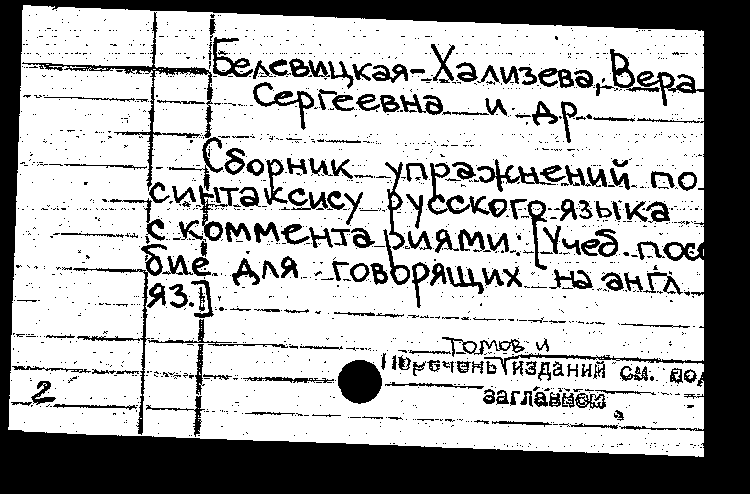 Белевицкая-Хализева, Вера
Сергеевна и др.
Сборник упражнений по
синтаксису русского языка
с комментариями: [Учеб. посо
бие для говорящих на англ.
яз.].
томов и
Перечень изданий см. под
заглавием
2